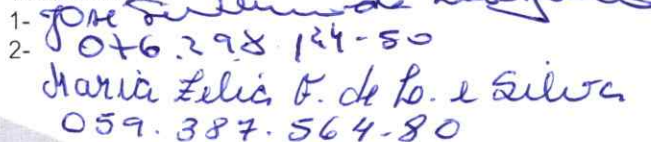 1- Jose
2- 076.298.124-50
Maria Zelia F. de Lo. e Silva
059.387.564-80